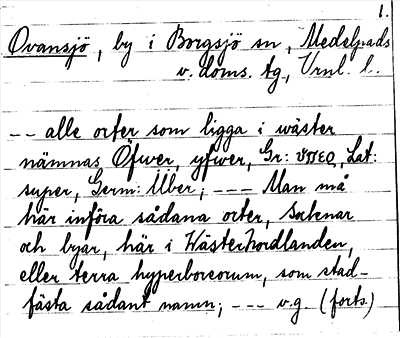 1.
Ovansjö, by i Borgsjö sn, Medelpads
v. doms. tg, Vrnl. l.
-- alle orter som ligga i wäster
nämnas Öfwer, yfwer, Gr: ὑπερ, Lat:
super, Germ: Über; --- Man må
här införa sådana orter, Soknar
och byar, här i Wästernordlanden,
eller terra hyperboreorum, som stad-
fästa sådant namn; --- v.g (forts.)